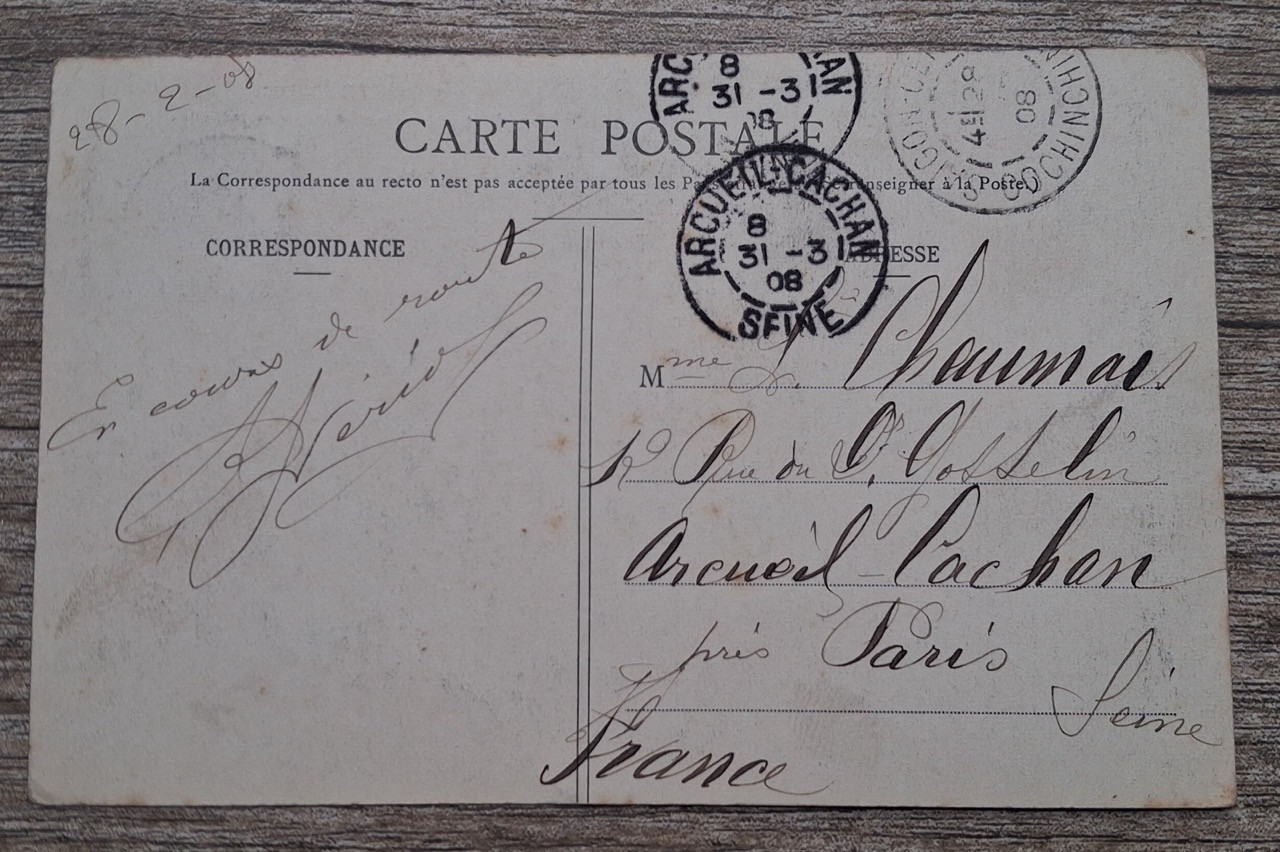 28-2-08
CARTE POSTALE
La Correspondance au recto n'est pas acceptée par tous les Pays étrangers (Se renseigner à la Poste.)
ARCUEIL-CACHAN
8
31 -3
08
COCHINCHINE
08
ARCUEIL-CACHAN
8
31 -3
08
SEINE
CORRESPONDANCE
En cours de route
ADRESSE
Mme L. Chaumais
Rue du Dr Gosselin
Arcueil-Cachan
près Paris
Seine
France